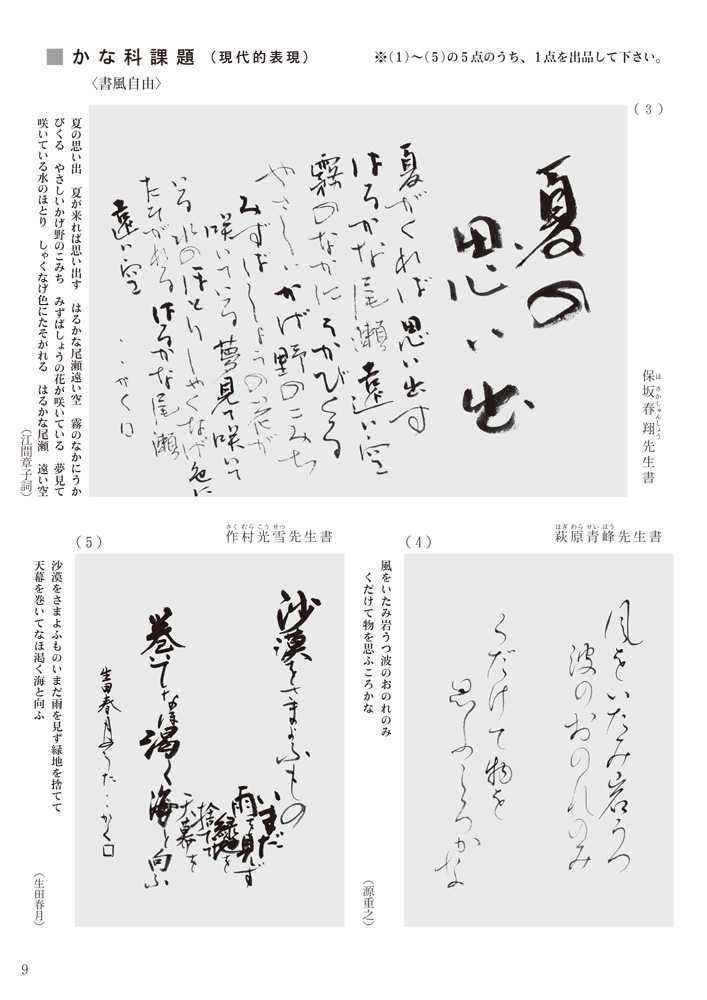 ■かな科課題（現代的表現）
※（1）～（5）の5点のうち、1点を出品して下さい。
〈書風自由〉
（3）
保坂春翔先生書
ほさかしゅんしょう
夏の
思い出
夏がくれば思い出す
はるかな尾瀬遠い空
霧のなかにうかびくる
やさしいかげ野のこみち
みずばしょうの花が
咲いている夢見て咲いて
いる水のほとりしゃくなげ色に
たそがれるはるかな尾瀬
遠い空
・・かく
夏の思い出　夏が来れば思い出す　はるかな尾瀬遠い空　霧のなかにうか
びくる　やさしいかげ野のこみち　みずばしょうの花が咲いている　夢見て
咲いている水のほとり　しゃくなげ色にたそがれる　はるかな尾瀬　遠い空
（江間章子詞）
（4）
萩原青峰先生書
はぎわらせいほう
風をいたみ岩うつ
波のおのれのみ
くだけて物を
思ふころかな
風をいたみ岩うつ波のおのれのみ
くだけて物を思ふころかな
（源重之）
（5）
作村光雪先生書
さくむらこうせつ
沙漠をさまよふもの
いまだ
雨を見ず
緑地を
捨てて
天幕を
巻いてなほ渇く海と向ふ
生田春月のうた・・かく
沙漠をさまよふものいまだ雨を見ず緑地を捨てて
天幕を巻いてなほ渇く海と向ふ
（生田春月）
9